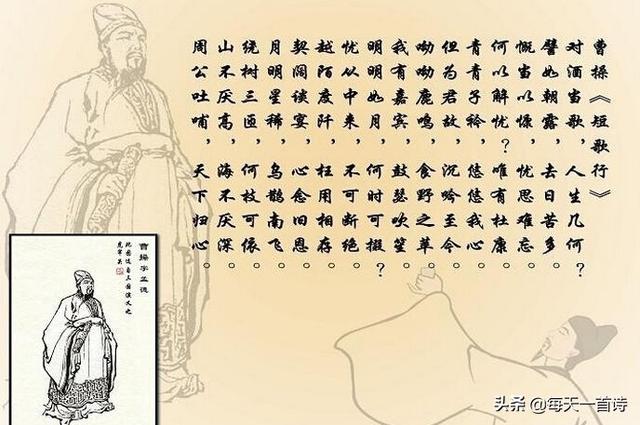 曹操《短歌行》
对酒当歌，人生几何？
譬如朝露，去日苦多。
慨当以慷，忧思难忘。
何以解忧？唯有杜康。
青青子衿，悠悠我心。
但为君故，沉吟至今。
呦呦鹿鸣，食野之苹。
我有嘉宾，鼓瑟吹笙。
明明如月，何时可掇？
忧从中来，不可断绝。
越陌度阡，枉用相存。
契阔谈宴，心念旧恩。
月明星稀，乌鹊南飞。
绕树三匝，何枝可依。
山不厌高，海不厌深。
周公吐哺，天下归心。
曹操字孟德
此图选自三国演义之
头条 @每天一首诗